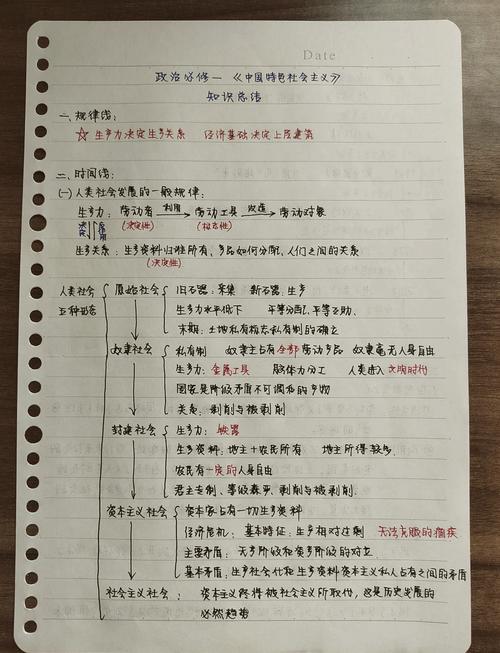 Date
政治必修一《中国特色社会主义》
知识总结
一、规律线：
☆ 生产力决定生产关系 经济基础决定上层建筑
二、时间线：
(一)人类社会发展的一般规律：
生产力：劳动者 利用→ 劳动工具 改造→ 劳动对象
决定 反作用 (决定性) (标志性)
生产关系：生产资料归谁所有、产品如何分配、人们之间的关系
(决定性)
人类社会 原始社会 旧石器：采集 新石器：生产
五种形态 生产力水平低下 平等分配,平等互助.
末期：土地私有标志私有制的确立
奴隶社会 私有制 奴隶主占有全部劳动产品 奴隶毫无人身自由
生产力：金属工具 脑体力分工 人类进入文明时代
国家是阶级矛盾不可调和的产物
关系：剥削与被剥削
封建社会 生产力：铁器
生产资料：地主+农民所有 地主所得较多.
农民有一定的人身自由
君主专制、等级森严、剥削与被剥削.
资本主义社会 资本家占有一切生产资料
经济危机：基本特征：生产相对过剩 无法克服的痼疾
主要矛盾：无产阶级和资产阶级的对立
基本矛盾：生产社会化和生产资料资本主义私人占有之间的矛盾
社会主义社会： 资本主义终将被社会主义所取代，这是历史发展的
必然趋势